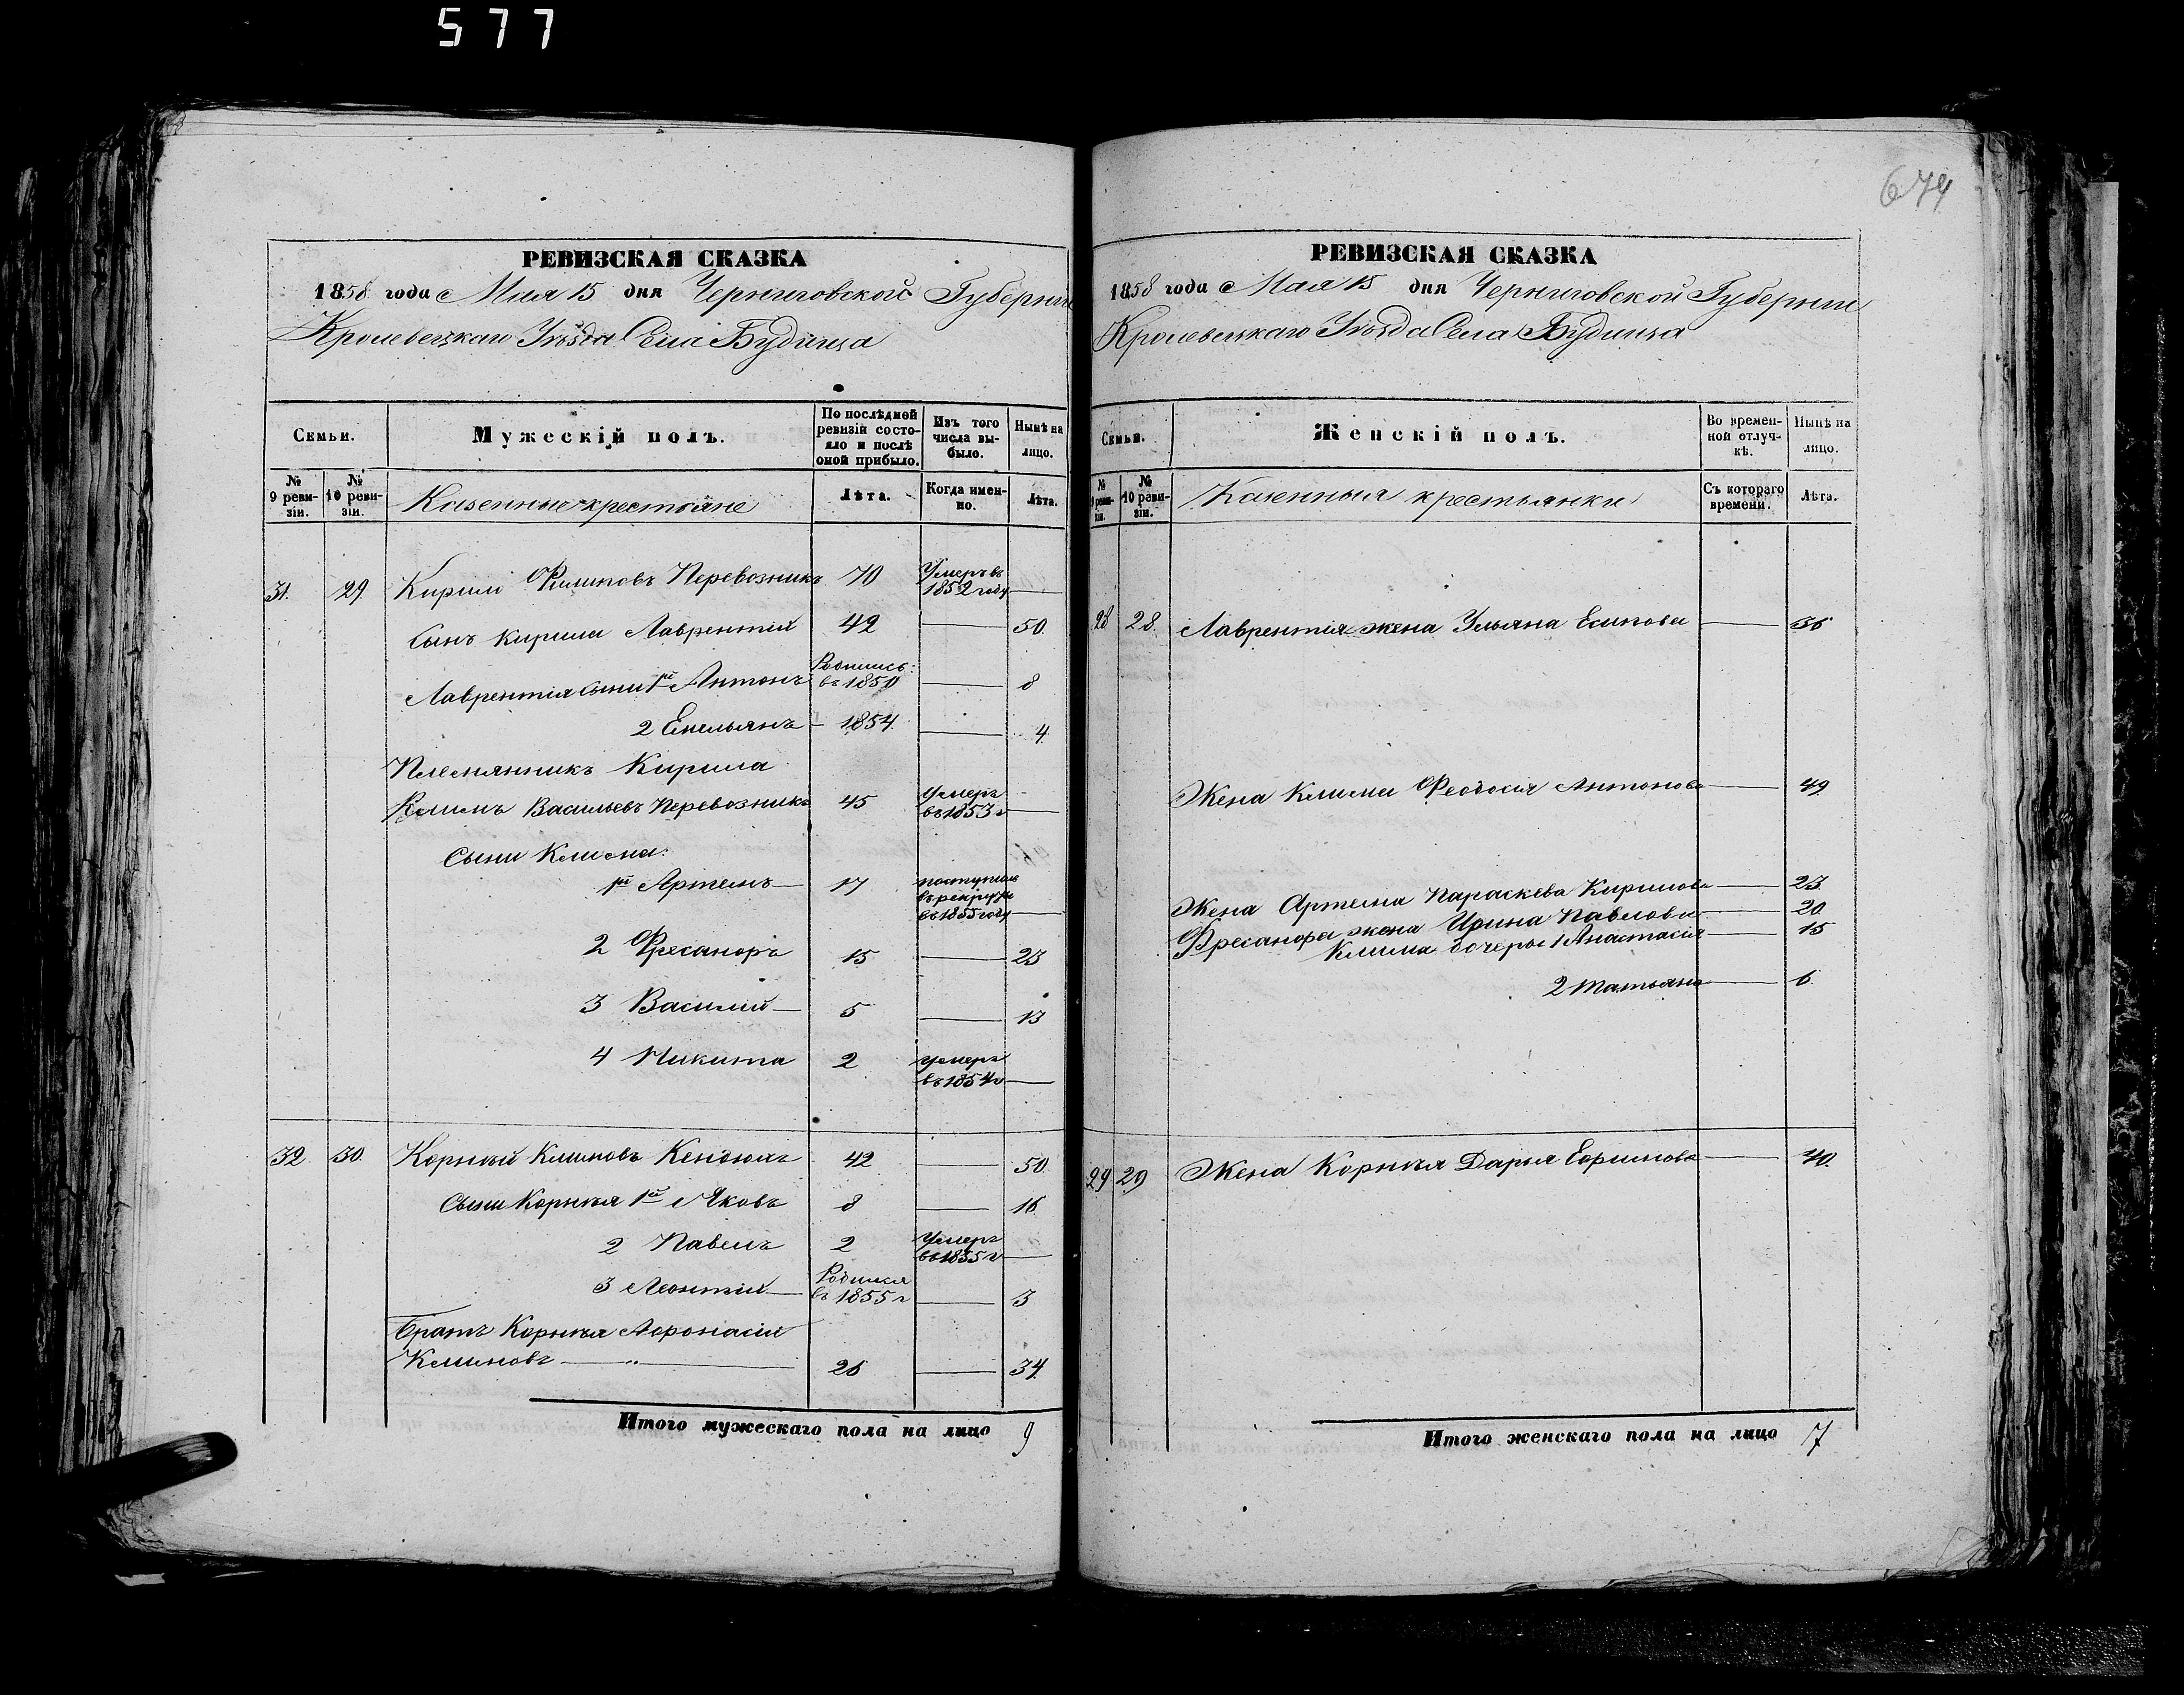 577
РЕВИЗСКАЯ СКАЗКА
1858 года Мая 15 дня Черниговской Губерніи
Кролевецкаго Уѣзда Села Будища
Семьи.
Мужескій полъ.
По послѣдней ревизіи состояло и послѣ оной прибыло.
Изъ того числа выбыло.
Нынѣ на лицо.
№ 9 ревизіи.
№ 10 ревизіи.
Казенные крестьяне
Лѣта.
Когда именно.
Лѣта.
31. 29. Кирилъ Филиповъ Перевозникъ 70 Умеръ въ 1852 году —
Сынъ Кирила Лаврентій 42 — 50.
Лаврентія сыни 1й Антонъ Родились: въ 1850 — 8
2 Емельянъ — 1854. — 4.
Племянникъ Кирила
Климъ Васильевъ Перевозникъ 45 Умеръ въ 1853 г —
Сыни Клима:
1й Артемъ — 17 поступилъ въ рекруты въ 1855 году —
2 Фресаноръ 15 — 23
3 Василий — 5 — 13
4 Никита 2 умеръ въ 1854 г —
32. 30. Корнѣй Климовъ Кендюхъ 42 — 50.
Сыни Корнѣя 1й Яковъ 8 — 16
2 Павелъ 2 Умеръ въ 1855 г —
3 Леонтій — Родился въ 1855 г — 3
Братъ Корнѣя Афонасій
Климовъ — " — 26 — 34.
Итого мужескаго пола на лицо 9
674
РЕВИЗСКАЯ СКАЗКА
1858 года Мая 15 дня Черниговской Губерніи
Кролевецкаго Уѣзда Села Будища
Семьи.
Женскій полъ.
Во временной отлучкѣ.
Нынѣ на лицо.
№ 9 ревизіи.
№ 10 ревизіи.
Казенныя крестьянки
Съ котораго времени.
Лѣта.
28 28. Лаврентія жена Ульяна Есипова — 36
Жена Клима Феодосія Антонова — 49
Жена Артема Параскева Кирилова — 23
Фресанора жена Ирина Павлова — 20
Клима дочеры 1 Анастасія — 15
2 Татьяна — 6.
29 29 Жена Корнѣя Дарья Ефимова — 40.
Итого женскаго пола на лицо 7